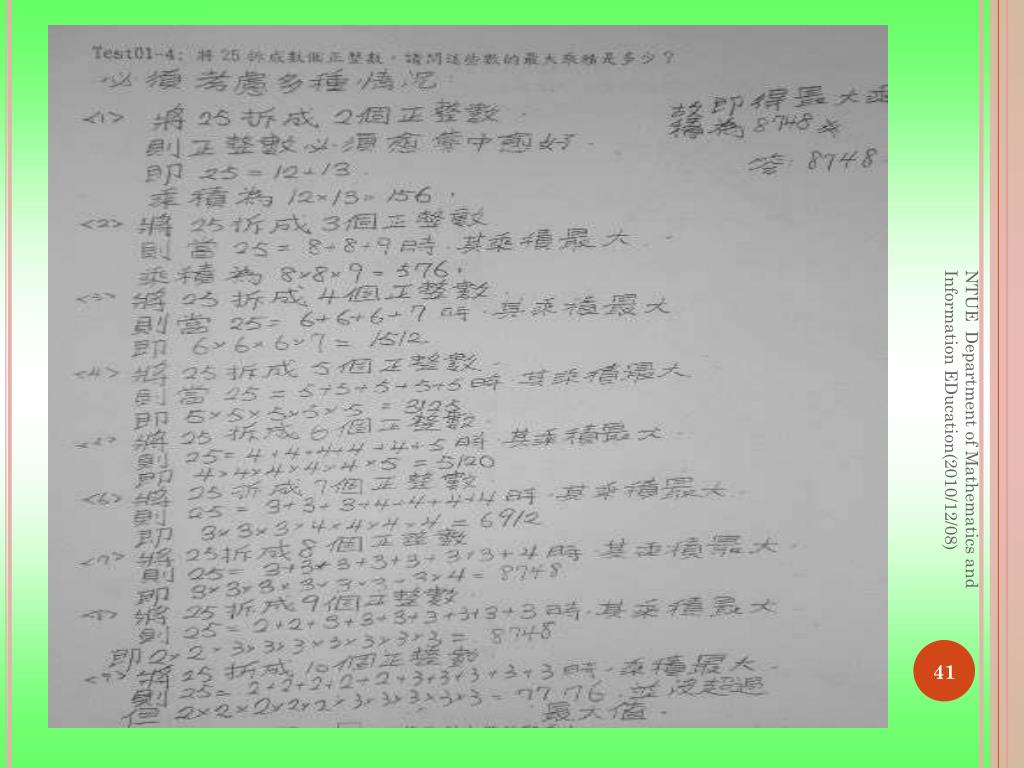 Test01-4: 將 25 拆成數個正整數，請問這些數的最大乘積是多少？
必須考慮多種情況:
<1> 將 25 拆成 2個正整數.
則正整數必須愈集中愈好.
即 25=12+13.
乘積為 12×13=156.
<2> 將 25 拆成 3個正整數
則當 25= 8+8+9 時.其乘積最大.
乘積為 8×8×9=576.
<3> 將 25 拆成 4個正整數.
則當 25= 6+6+6+7 時.其乘積最大
即 6×6×6×7= 1512.
<4> 將 25 拆成 5個正整數.
則當 25=5+5+5+5+5時 其乘積最大
即 5×5×5×5×5 =3125
將 25 拆成 6個正整數.
則 25=4+4+4+4+4+5時.其乘積最大.
即 4×4×4×4×4×5=5120
<6> 將 25拆成7個正整數
則 25= 3+3+3+4+4+4+4時.其乘積最大.
即 3×3×3×4×4×4×4=6912
<7> 將25拆成8個正整數
則25= 3+3+3+3+3+3+3+4時.其乘積最大.
即 3×3×3×3×3×3×3×4=8748
將25拆成9個正整數
則25=2+2+3+3+3+3+3+3+3時.其乘積最大
即2×2×3×3×3×3×3×3×3= 8748
將25拆成10個正整數
則25= 2+2+2+2+2+3+3+3+3+3時.乘積最大.
但 2×2×2×2×2×3×3×3×3×3=7776.並沒超過
最大值.
故即得最大乘
積為8748
答: 8748
NTUE Department of Mathematics and
Information EDucation(2010/12/08)
41